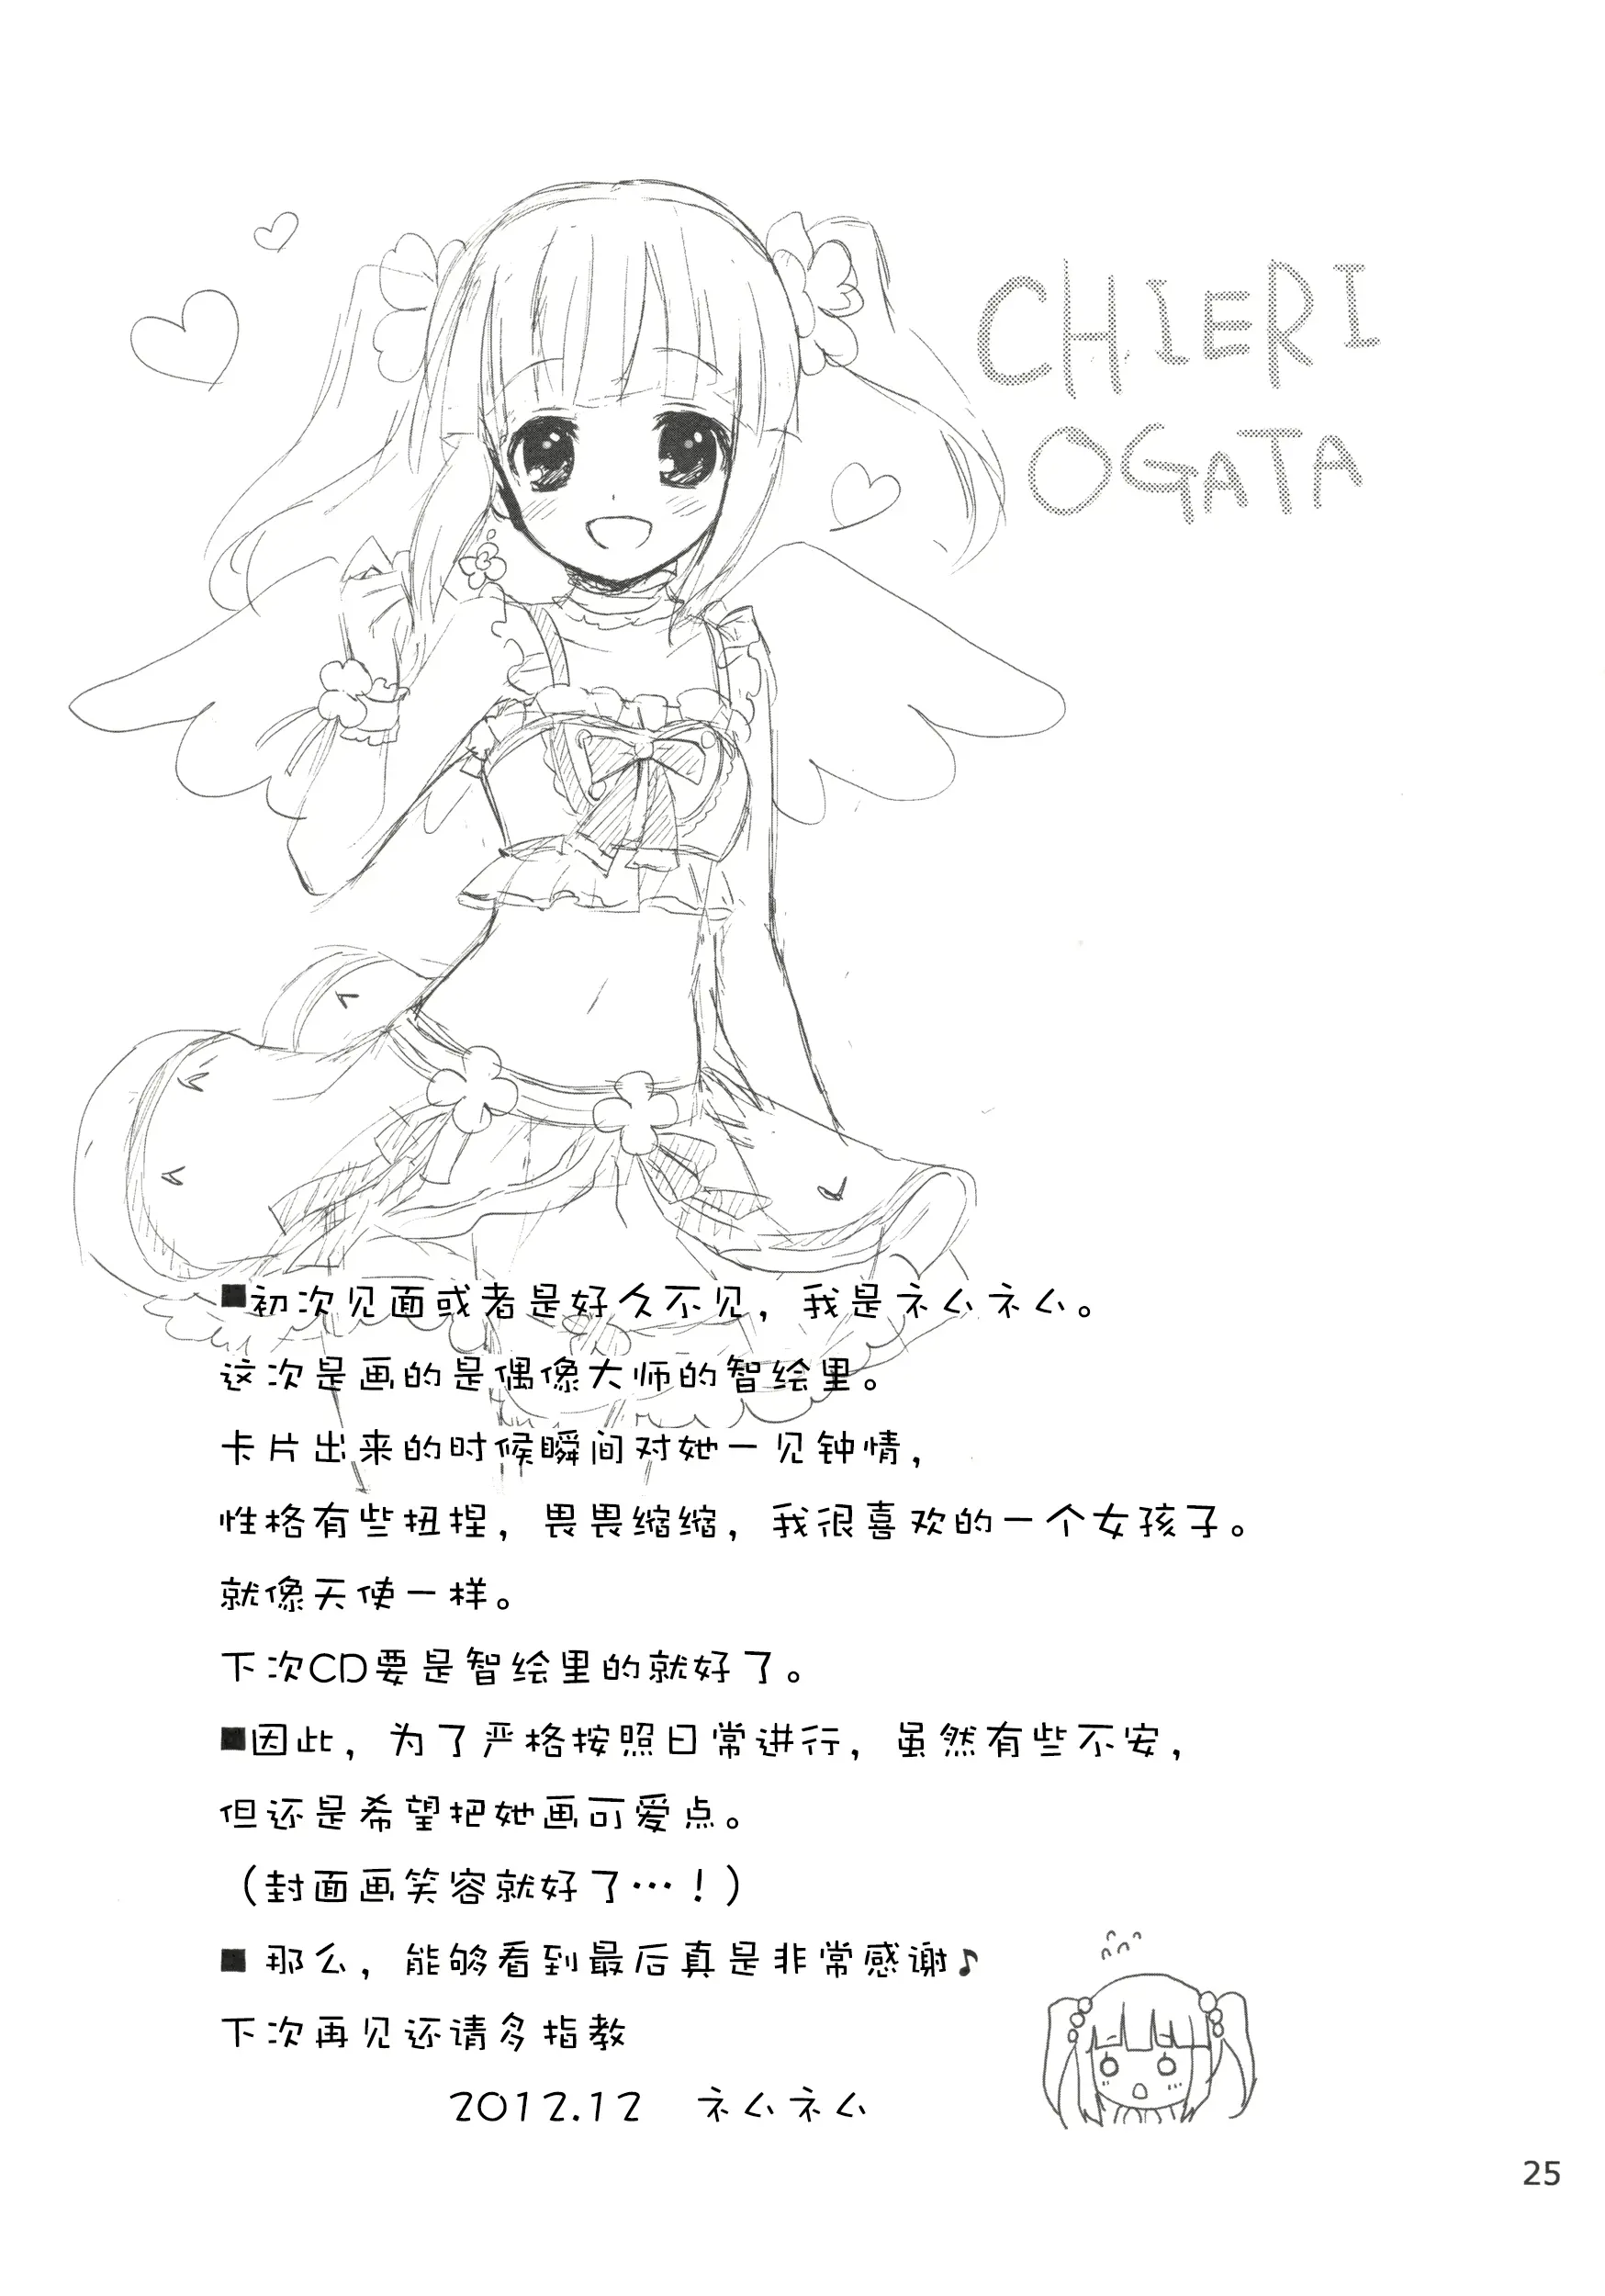 CHIERI
OGATA
■初次见面或者是好久不见，我是ネムネム。
这次是画的是偶像大师的智绘里。
卡片出来的时候瞬间对她一见钟情，
性格有些扭捏，畏畏缩缩，我很喜欢的一个女孩子。
就像天使一样。
下次CD要是智绘里的就好了。
■因此，为了严格按照日常进行，虽然有些不安，
但还是希望把她画可爱点。
（封面画笑容就好了…！）
■ 那么，能够看到最后真是非常感谢♪
下次再见还请多指教
2012.12 ネムネム
25